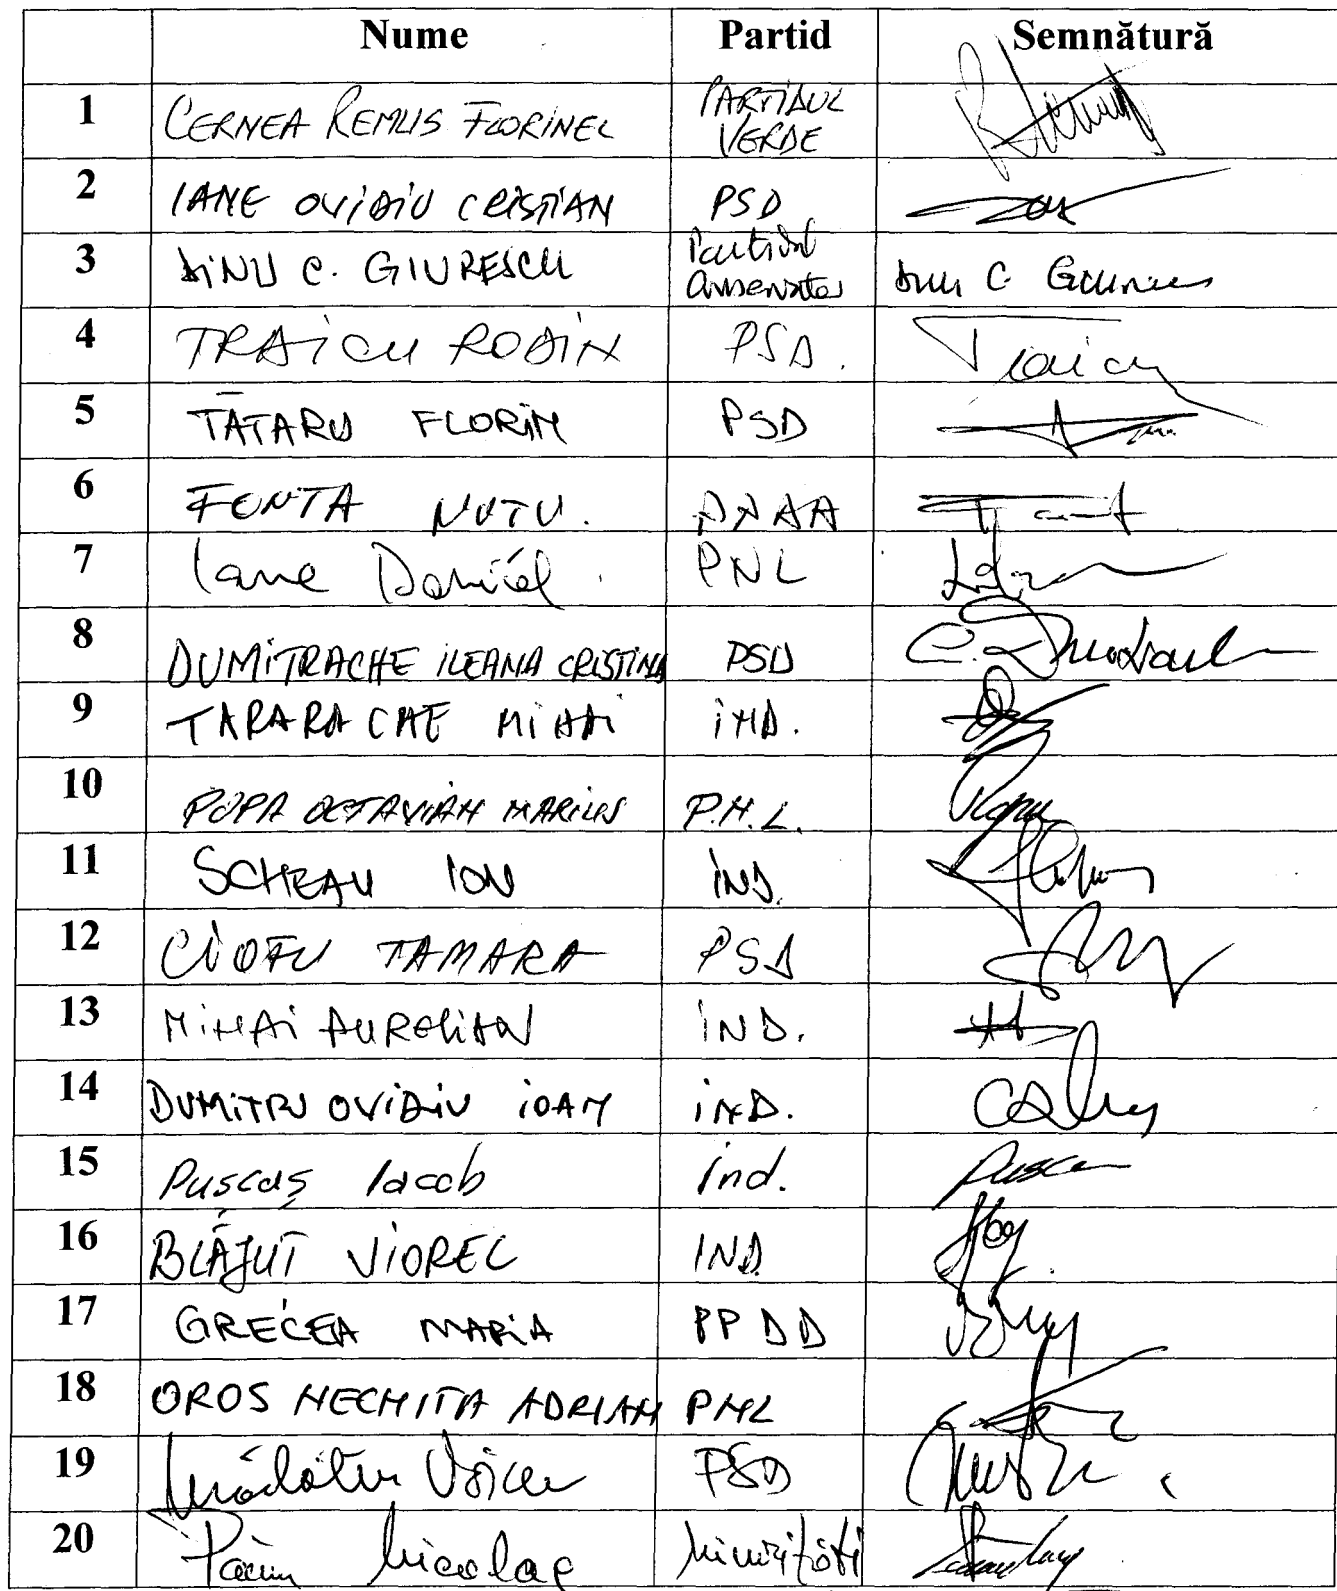 Nume Partid Semnătură
1 CERNEA REMUS FLORINEL PARTIDUL VERDE
2 IANE OVIDIU CRISTIAN PSD
3 DINU C. GIURESCU Partidul Conservator Dinu C. Giurescu
4 TRAICU RODIN PSD. Traicu
5 TĂTARU FLORIN PSD
6 FONTA NUTU.
7 Iane Daniel. PNL
8 DUMITRACHE ILEANA CRISTINA PSD
9 TARARACHE MIHAI IND.
10 POPA OCTAVIAN MARIUS P.N.L. Popa
11 SCHEAU ION IND.
12 CIOFU TAMARA PSD
13 MIHAI AURELIAN IND.
14 DUMITRU OVIDIU IOAN IND.
15 Puscaş Iacob Ind.
16 BLĂJUŢ VIOREL IND.
17 GRECEA MARIA PPDD
18 OROS NECHITA ADRIAN PNL
19 Mădălin Voicu PSD
20 Păun Nicolae Minorităţi